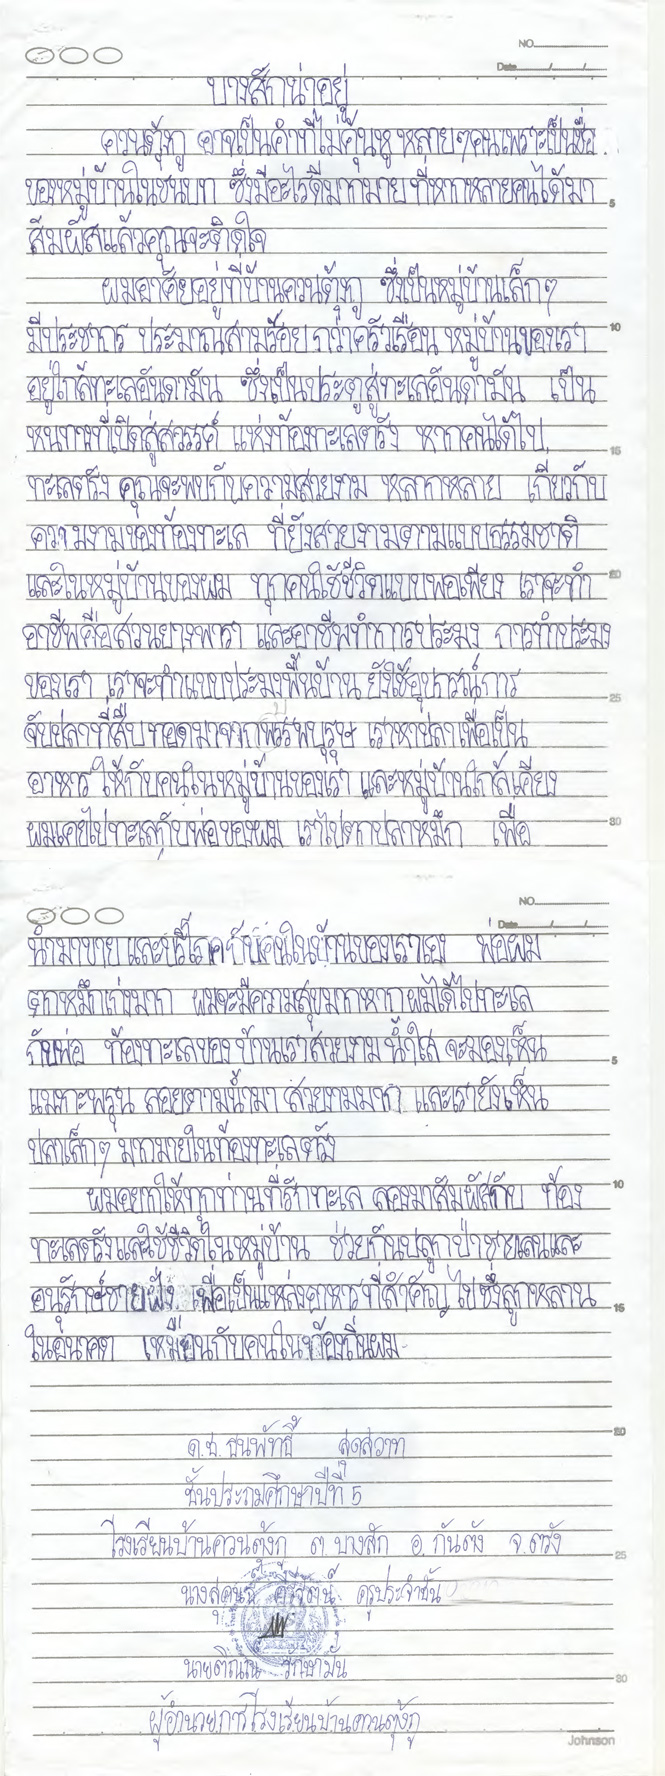 NO.
Date / /
บางสักน่าอยู่
ควนตุ้งกู อาจเป็นคำที่ไม่คุ้นหู หลายๆคนเพราะเป็นชื่อ
ของหมู่บ้านในชนบท ซึ่งมีอะไรดีมากมาย ที่หากหลายคนได้มา
5
สัมผัสแล้วคุณจะติดใจ
ผมอาศัยอยู่ที่บ้านควนตุ้งกู ซึ่งเป็นหมู่บ้านเล็กๆ
มีประชากร ประมาณสามร้อย กว่าครัวเรือน หมู่บ้านของเรา
10
อยู่ใกล้ทะเลอันดามัน ซึ่งเป็นประตูสู่ทะเลอันดามัน เป็น
หนทางที่เปิดสู่สวรรค์ แห่งท้องทะเลตรัง หากคนได้ไป
15
ทะเลตรัง คุณจะพบกับความสวยงาม หลากหลาย เกี่ยวกับ
ความงามของท้องทะเล ที่ยังสวยงามตามแบบธรรมชาติ
และในหมู่บ้านของผม ทุกคนใช้ชีวิตแบบพอเพียง เราจะทำ
20
อาชีพคือสวนยางพารา และอาชีพทำการประมง การทำประมง
ของเรา เราจะทำแบบประมงพื้นบ้าน ยังใช้อุปกรณ์การ
25
จับปลาที่สืบทอดมาจากบรรพบุรุษ เราหาปลาเพื่อเป็น
อาหาร ให้กับคนในหมู่บ้านของเรา และหมู่บ้านใกล้เคียง
ผมเคยไปทะเลกับพ่อของผม เราไปตกปลาหมึก เพื่อ
30
NO.
Date / /
นำมาขาย และบริโภคกับคนในบ้านของเราเอง พ่อผม
ตกหมึกเก่งมาก ผมจะมีความสุขมากหากผมได้ไปทะเล
กับพ่อ ท้องทะเลของบ้านเราสวยงาม น้ำใส จะมองเห็น
5
แมงกะพรุน ลอยตามน้ำมา สวยงามมาก และเรายังเห็น
ปลาเล็กๆ มากมายในท้องทะเลตรัง
ผมอยากให้ทุกท่านที่รักทะเล ลองมาสัมผัสกับ ท้อง
10
ทะเลตรังและใช้ชีวิตในหมู่บ้าน ช่วยกันปลูกป่าชายเลนและ
อนุรักษ์ชายฝั่ง เพื่อเป็นแหล่งอาหารที่สำคัญ ไปซึ่งลูกหลาน
15
ในอนาคต เหมือนกับคนในท้องถิ่นผม
20
ด.ช. ธนพัทธิ์ สุดสวาท
ชั้นประถมศึกษาปีที่ 5
โรงเรียนบ้านควนตุ้งกู ต.บางสัก อ.กันตัง จ.ตรัง
25
ครูประจำชั้น
รักษามั่น
30
ผู้อำนวยการโรงเรียนบ้านควนตุ้งกู
Johnson